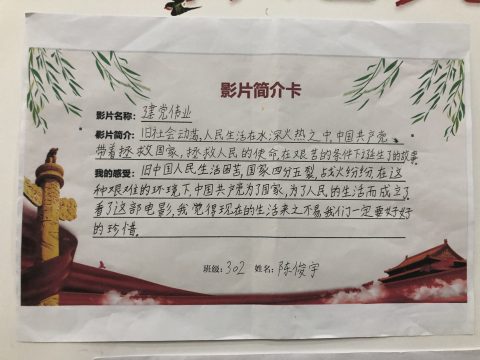 影片简介卡
影片名称：建党伟业
影片简介：旧社会动荡，人民生活在水深火热之中，中国共产党
带着拯救国家，拯救人民的使命，在艰苦的条件下诞生了的故事。
我的感受：旧中国人民生活困苦，国家四分五裂，战火纷纷，在这
种艰难的环境下，中国共产党为了国家，为了人民的生活而成立了，
看了这部电影，我觉得现在的生活来之不易，我们一定要好好
的珍惜。
班级：302 姓名：陈俊宇